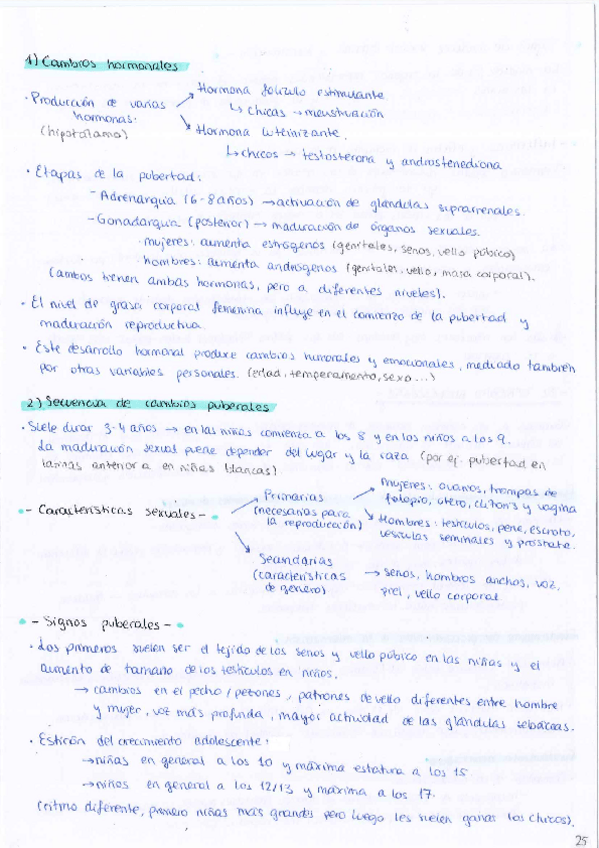 1) Cambios hormonales
· Producción de varias hormonas: (hipotálamo)
Hormona folículo estimulante
↳ chicas → menstruación
Hormona luteinizante.
↳ chicos → testosterona y androstenediona
· Etapas de la pubertad:
- Adrenarquia (6-8 años) → activación de glándulas suprarrenales.
- Gonadarquia (posterior) → maduración de órganos sexuales.
· mujeres: aumenta estrógenos (genitales, senos, vello púbico)
· hombres: aumenta andrógenos (genitales, vello, masa corporal).
(ambos tienen ambas hormonas, pero a diferentes niveles).
· El nivel de grasa corporal femenina influye en el comienzo de la pubertad y
maduración reproductiva.
· Este desarrollo hormonal produce cambios humorales y emocionales, mediado también
por otras variables personales. (edad, temperamento, sexo...)
2) Secuencia de cambios puberales
· Suele durar 3-4 años → en las niñas comienza a los 8 y en los niños a los 9.
La maduración sexual puede depender del lugar y la raza (por ej. pubertad en
latinas anterior a en niñas blancas).
- Características sexuales -
Primarias
(necesarias para
la reproducción)
Mujeres: ovarios, trompas de
falopio, útero, clítoris y vagina
Hombres: testículos, pene, escroto,
vesículas seminales y próstata.
Secundarias
(características
de género)
→ senos, hombros anchos, voz,
piel, vello corporal
- Signos puberales -
· Los primeros suelen ser el tejido de los senos y vello púbico en las niñas y el
aumento de tamaño de los testículos en niños.
→ cambios en el pecho/pezones, patrones de vello diferentes entre hombre
y mujer, voz más profunda, mayor actividad de las glándulas sebáceas.
· Estirón del crecimiento adolescente:
→ niñas en general a los 10 y máxima estatura a los 15
→ niños en general a los 12/13 y máxima a los 17.
(ritmo diferente, primero niñas más grandes pero luego les suelen ganar los chicos).
25